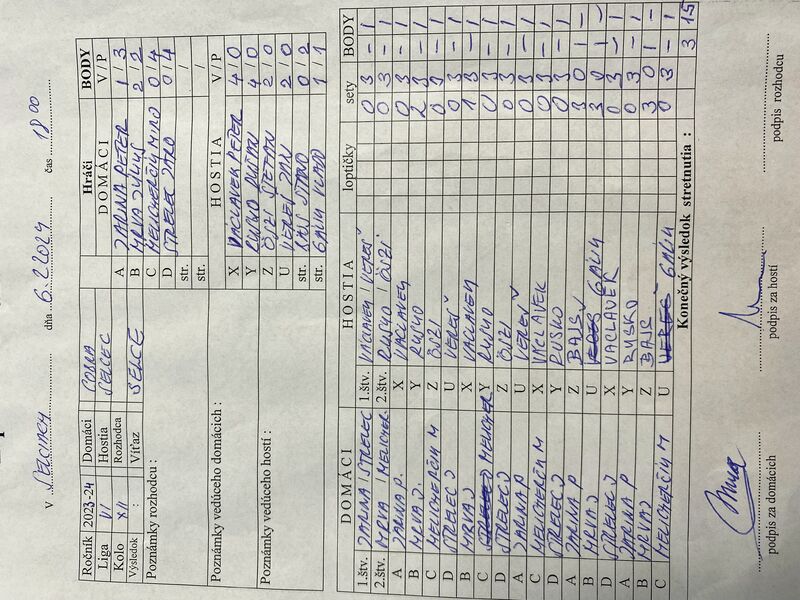 V SELCIACH dňa 6.2.2024 čas 18 00
Ročník 2023-24 Domáci COBRA
Liga VI Hostia SELCEC
Kolo XII Rozhodca
Výsledok : Víťaz SELCE
Poznámky rozhodcu :
Poznámky vedúceho domácich :
Poznámky vedúceho hostí :
Hráči BODY
DOMÁCI V/P
A JARINA PETER 1/3
B MRVA JÚLIUS 2/2
C MELICHERČÍK MIRO 0/4
D STRELEC JARO 0/4
str. /
str. /
HOSTIA V/P
X VÁCLAVEK PETER 4/0
Y RUSKO DUŠAN 4/0
Z ÖSZI ŠTEFAN 2/0
U VEREŠ JÁN 2/0
str. 0/2
str. GÁLIK VLADO 1/1
DOMÁCI HOSTIA loptičky sety BODY
1.štv. JARINA / STRELEC 1.štv. VÁCLAVEK / VEREŠ 0 3 - 1
2.štv. MRVA / MELICHER 2.štv. RUSKO / ÖSZI 0 3 - 1
A JARINA P. X VÁCLAVEK 0 3 - 1
B MRVA J. Y RUSKO 2 3 - 1
C MELICHERČÍK M Z ÖSZI 0 3 - 1
D STRELEC J U VEREŠ 0 3 - 1
B MRVA J X VÁCLAVEK 1 3 - 1
C MELICHER Y RUSKO 0 3 - 1
D STRELEC J Z ÖSZI 0 3 - 1
A JARINA P U VEREŠ 0 3 - 1
C MELICHERČÍK M X VÁCLAVEK 0 3 - 1
D STRELEC J Y RUSKO 0 3 - 1
A JARINA P Z BAJS 3 0 1 -
B MRVA J U GÁLIK 3 1 -
D STRELEC J X VACLAVEK 0 3 - 1
A JARINA P Y RUSKO 0 3 - 1
B MRVA J Z BAJS 3 0 1 -
C MELICHERČÍK M U GÁLIK 0 3 - 1
Konečný výsledok stretnutia : 3 15
podpis za domácich podpis za hostí podpis rozhodcu